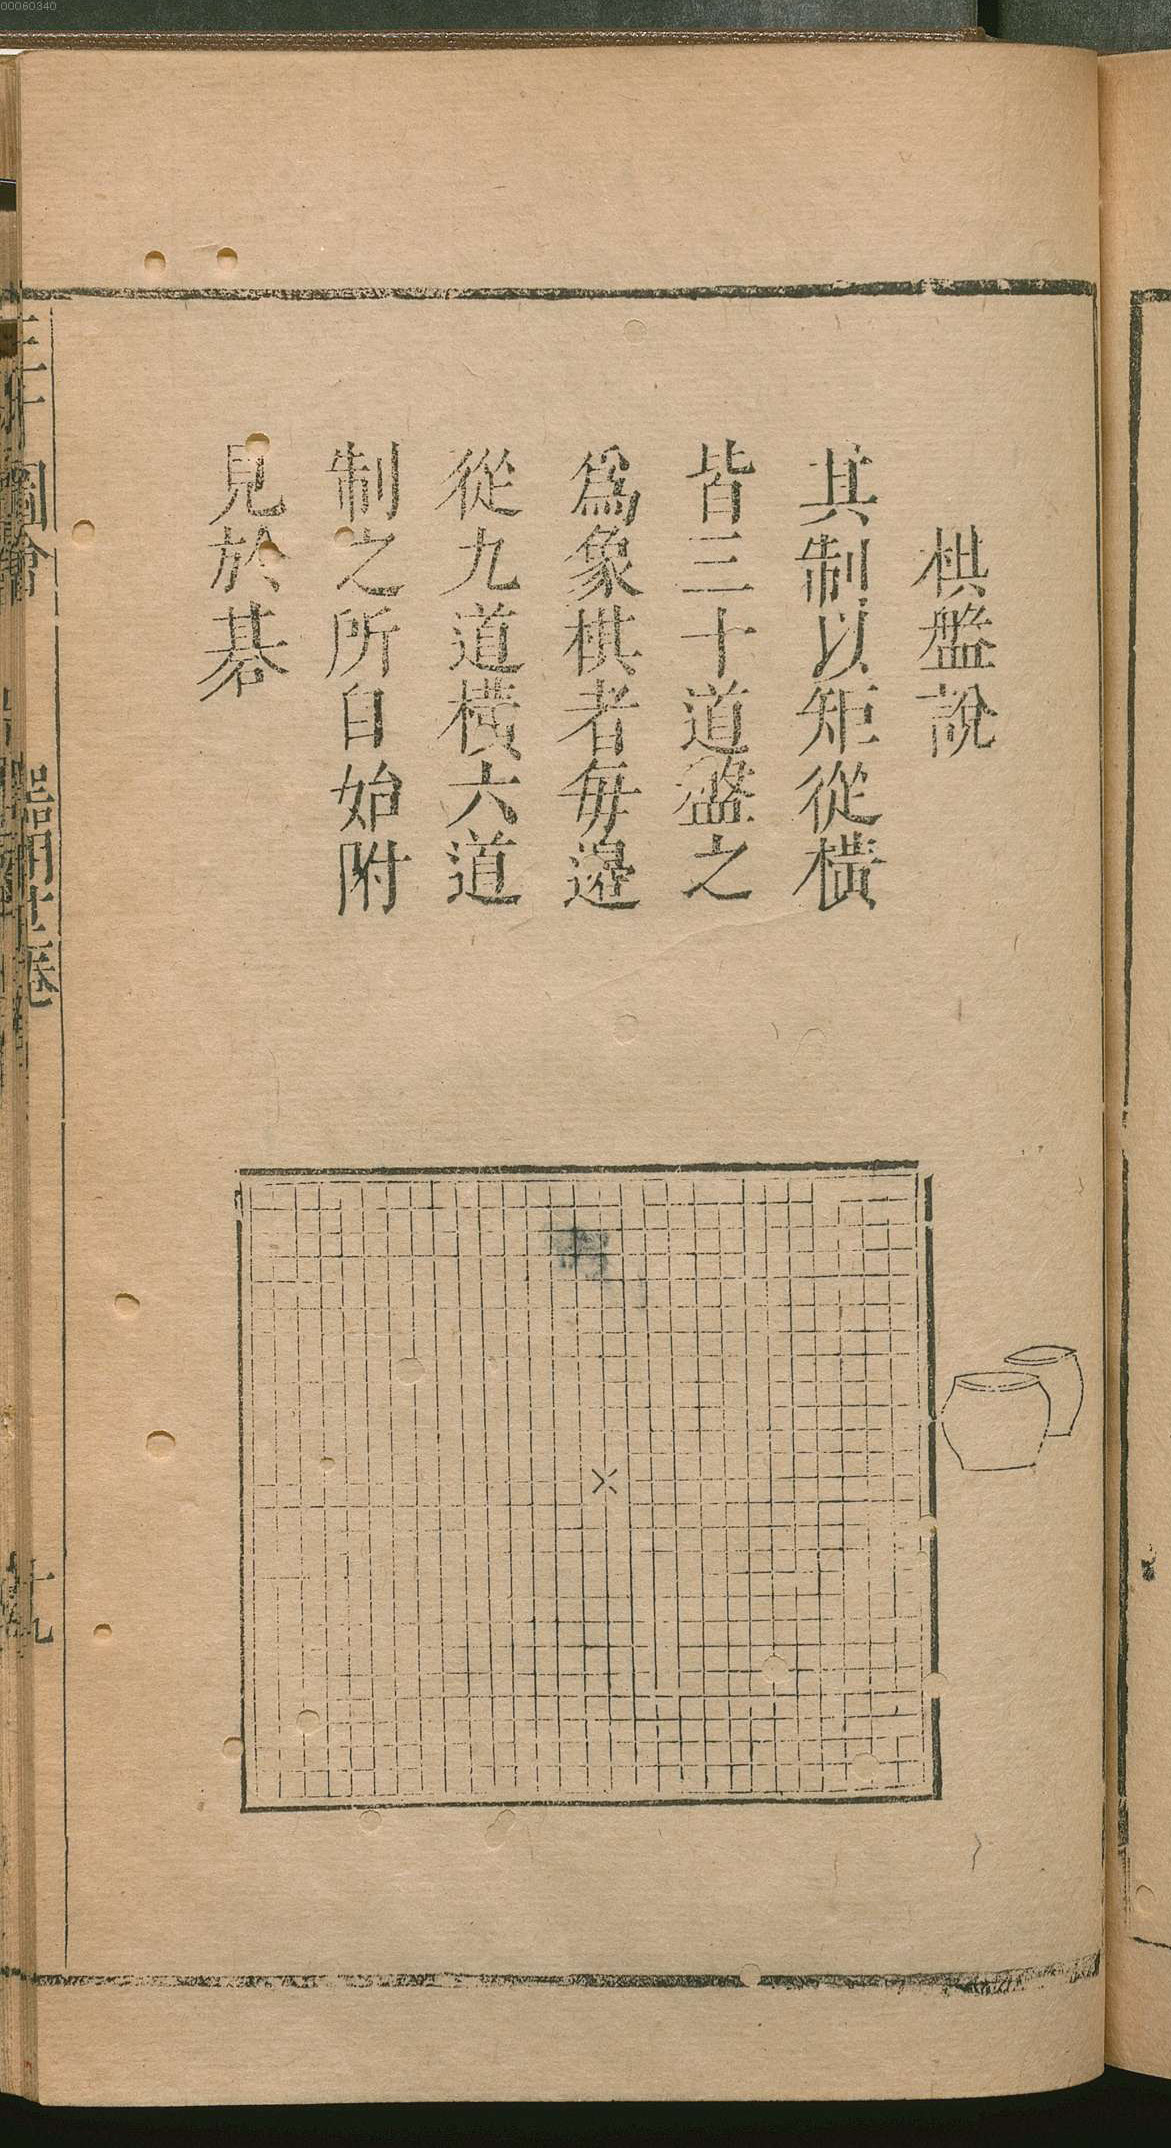 00060340
棋盤說
其制以矩從橫
皆三十道盤之
爲象棋者每邊
從九道橫六道
制之所自始附
見於棊
圖會
器用十二卷
十九